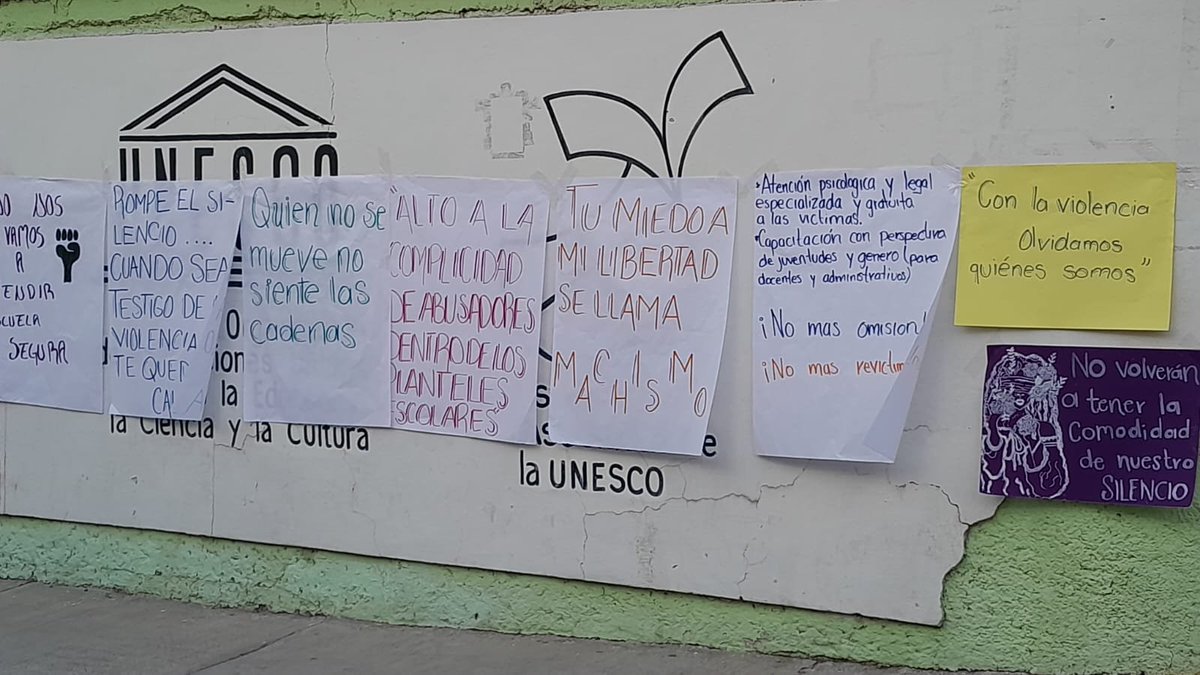 UNESCO
VAMOS
A
SEGURA
ROMPE EL SI-
LENCIO ....
CUANDO SEA
TESTIGO DE
VIOLENCIA
TE
Quien no se
mueve no
siente las
cadenas
"ALTO A LA
COMPLICIDAD
DE ABUSADORES
DENTRO DE LOS
PLANTELES
ESCOLARES"
TU MIEDO A
MI LIBERTAD
SE LLAMA
MACHISMO
•Atención psicologica y legal
especializada y gratuita
a las victimas.
•Capacitación con perspectiva
de juventudes y genero (para
docentes y administrativos)
¡No mas omisión!
¡No mas
"Con la violencia
Olvidamos
quiénes somos"
No volverán
a tener la
comodidad
de nuestro
SILENCIO
la
la Ciencia y la Cultura
la UNESCO